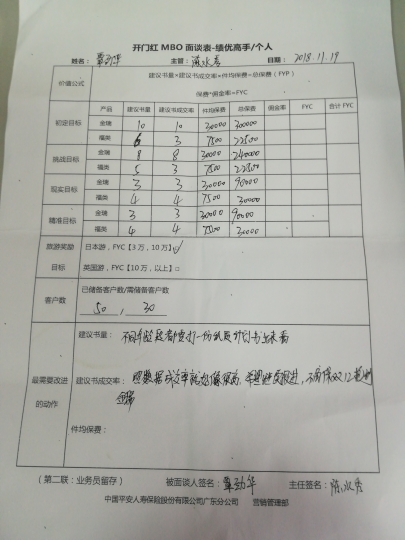 开门红 MBO 面谈表-绩优高手/个人
姓名： 覃劲华 主管： 日期： 2018.11.19
价值公式 建议书量*建议书成交率*件均保费=总保费（FYP）
保费*佣金率=FYC
产品 建议书量 建议书成交率 件均保费 总保费 佣金率 FYC 合计 FYC
初定目标 金瑞 10 10 30000 300000
福类 6 3 7500 22500
挑战目标 金瑞 8 8 30000 240000
福类 5 3 7500 22500
现实目标 金瑞 3 3 30000 90000
福类 4 4 7500 30000
精准目标 金瑞 3 3 30000 90000
福类 4 4 7500 30000
旅游奖励目标 日本游，FYC【3万，10万】√
英国游，FYC【10万，以上】□
客户数 已储备客户数/需储备客户数
50 , 30
最需要改进的动作 建议书量： 不同年龄段都要打一份纸质计划书出来看
建议书成交率：
件均保费：
（第二联：业务员留存） 被面谈人签名： 覃劲华 主任签名：
中国平安人寿保险股份有限公司广东分公司 营销管理部